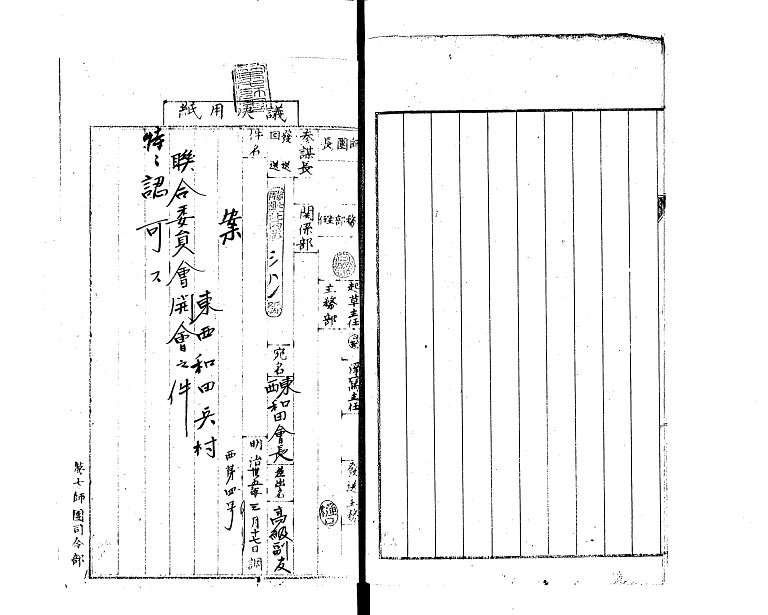 議決用紙
師團長
參謀長
關係部
主務部
起草主任
淨寫主任
發送主務
樋口
發送
回送
件名
宛名
東西和田會長
高級副友
明治
三月十七日調
西第四号
案
東西和田兵村
聯合委員會開會之件
特ニ認可ス
第七師團司令部